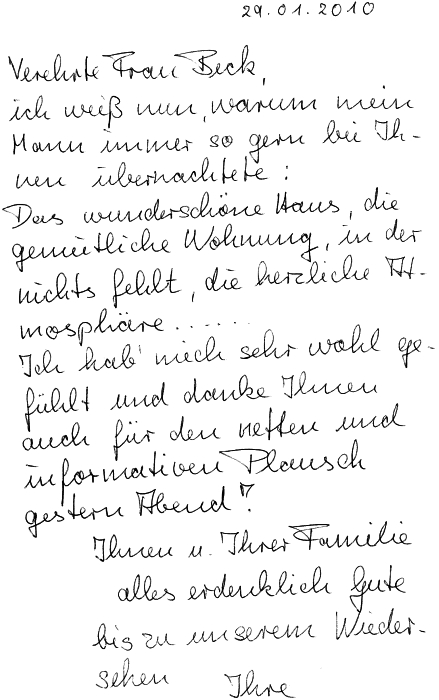 29.01.2010
Verehrte Frau Beck,
ich weiß nun, warum mein
Mann immer so gern bei Ih-
nen übernachtete:
Das wunderschöne Haus, die
gemütliche Wohnung, in der
nichts fehlt, die herzliche At-
mosphäre......
Ich hab' mich sehr wohl ge-
fühlt und danke Ihnen
auch für den netten und
informativen Plausch
gestern Abend!
Ihnen u. Ihrer Familie
alles erdenklich Gute
bis zu unserem Wieder-
sehen Ihre